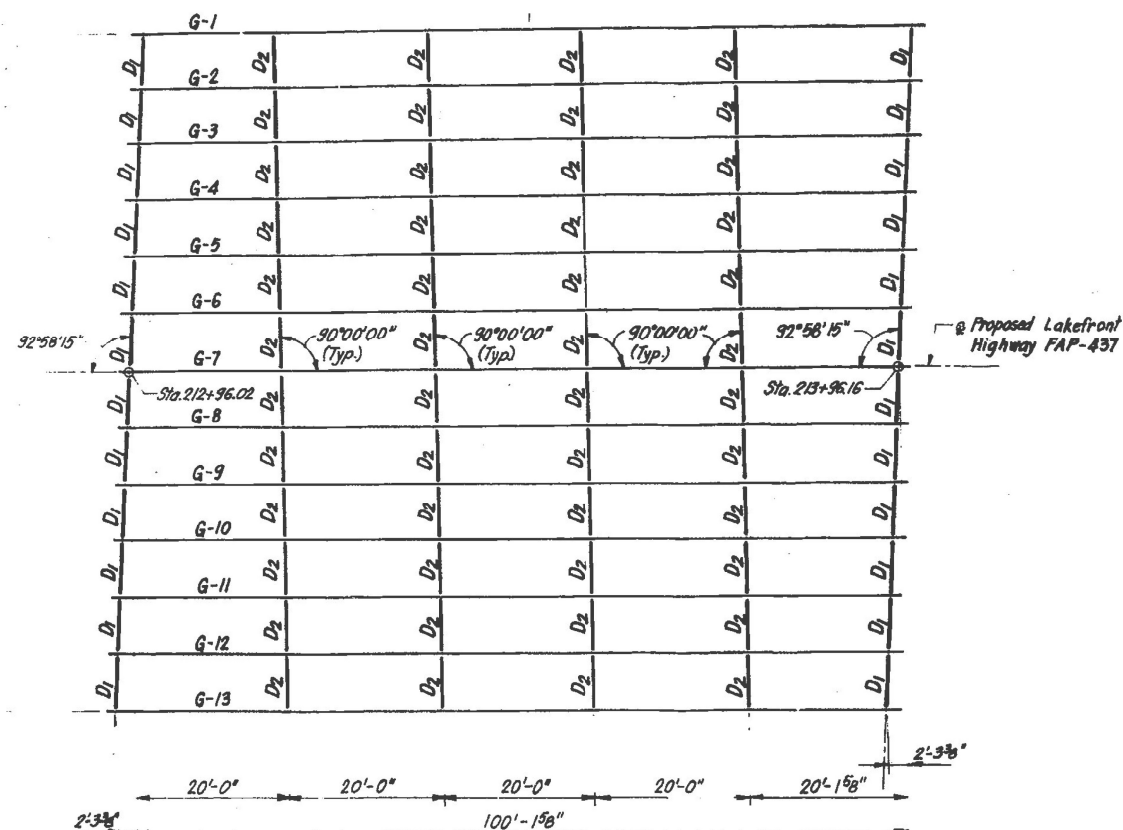 G-1
D1 D2 D2 D2 D2 D1
G-2
D1 D2 D2 D2 D2 D1
G-3
D1 D2 D2 D2 D2 D1
G-4
D1 D2 D2 D2 D2 D1
G-5
D1 D2 D2 D2 D2 D1
G-6
D1 D2 D2 D2 D2 D1
92°58'15"
G-7
90°00'00"
(Typ.)
90°00'00"
(Typ.)
90°00'00"
(Typ.)
92°58'15"
℄ Proposed Lakefront
Highway FAP-437
Sta. 212+96.02
Sta. 213+96.16
D1 D2 D2 D2 D2 D1
G-8
D1 D2 D2 D2 D2 D1
G-9
D1 D2 D2 D2 D2 D1
G-10
D1 D2 D2 D2 D2 D1
G-11
D1 D2 D2 D2 D2 D1
G-12
D1 D2 D2 D2 D2 D1
G-13
2'-3⅜"
20'-0"
20'-0"
20'-0"
20'-0"
20'-1⅝"
2'-3⅜"
100'-1⅝"